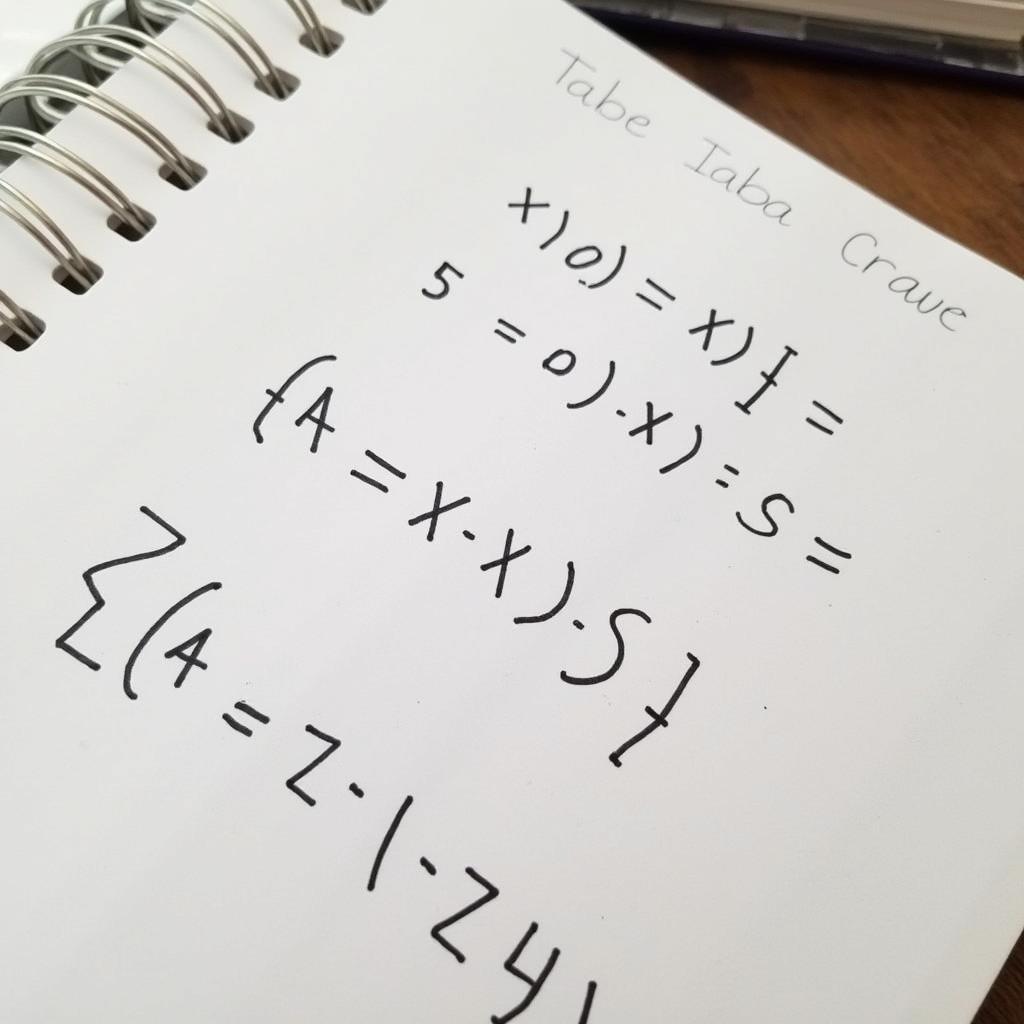 Tabe Iaba Crave
x)0.) = x)} =
5 = 0).x) = S =
{A = x.x).S}
{(A = z.1.zy)